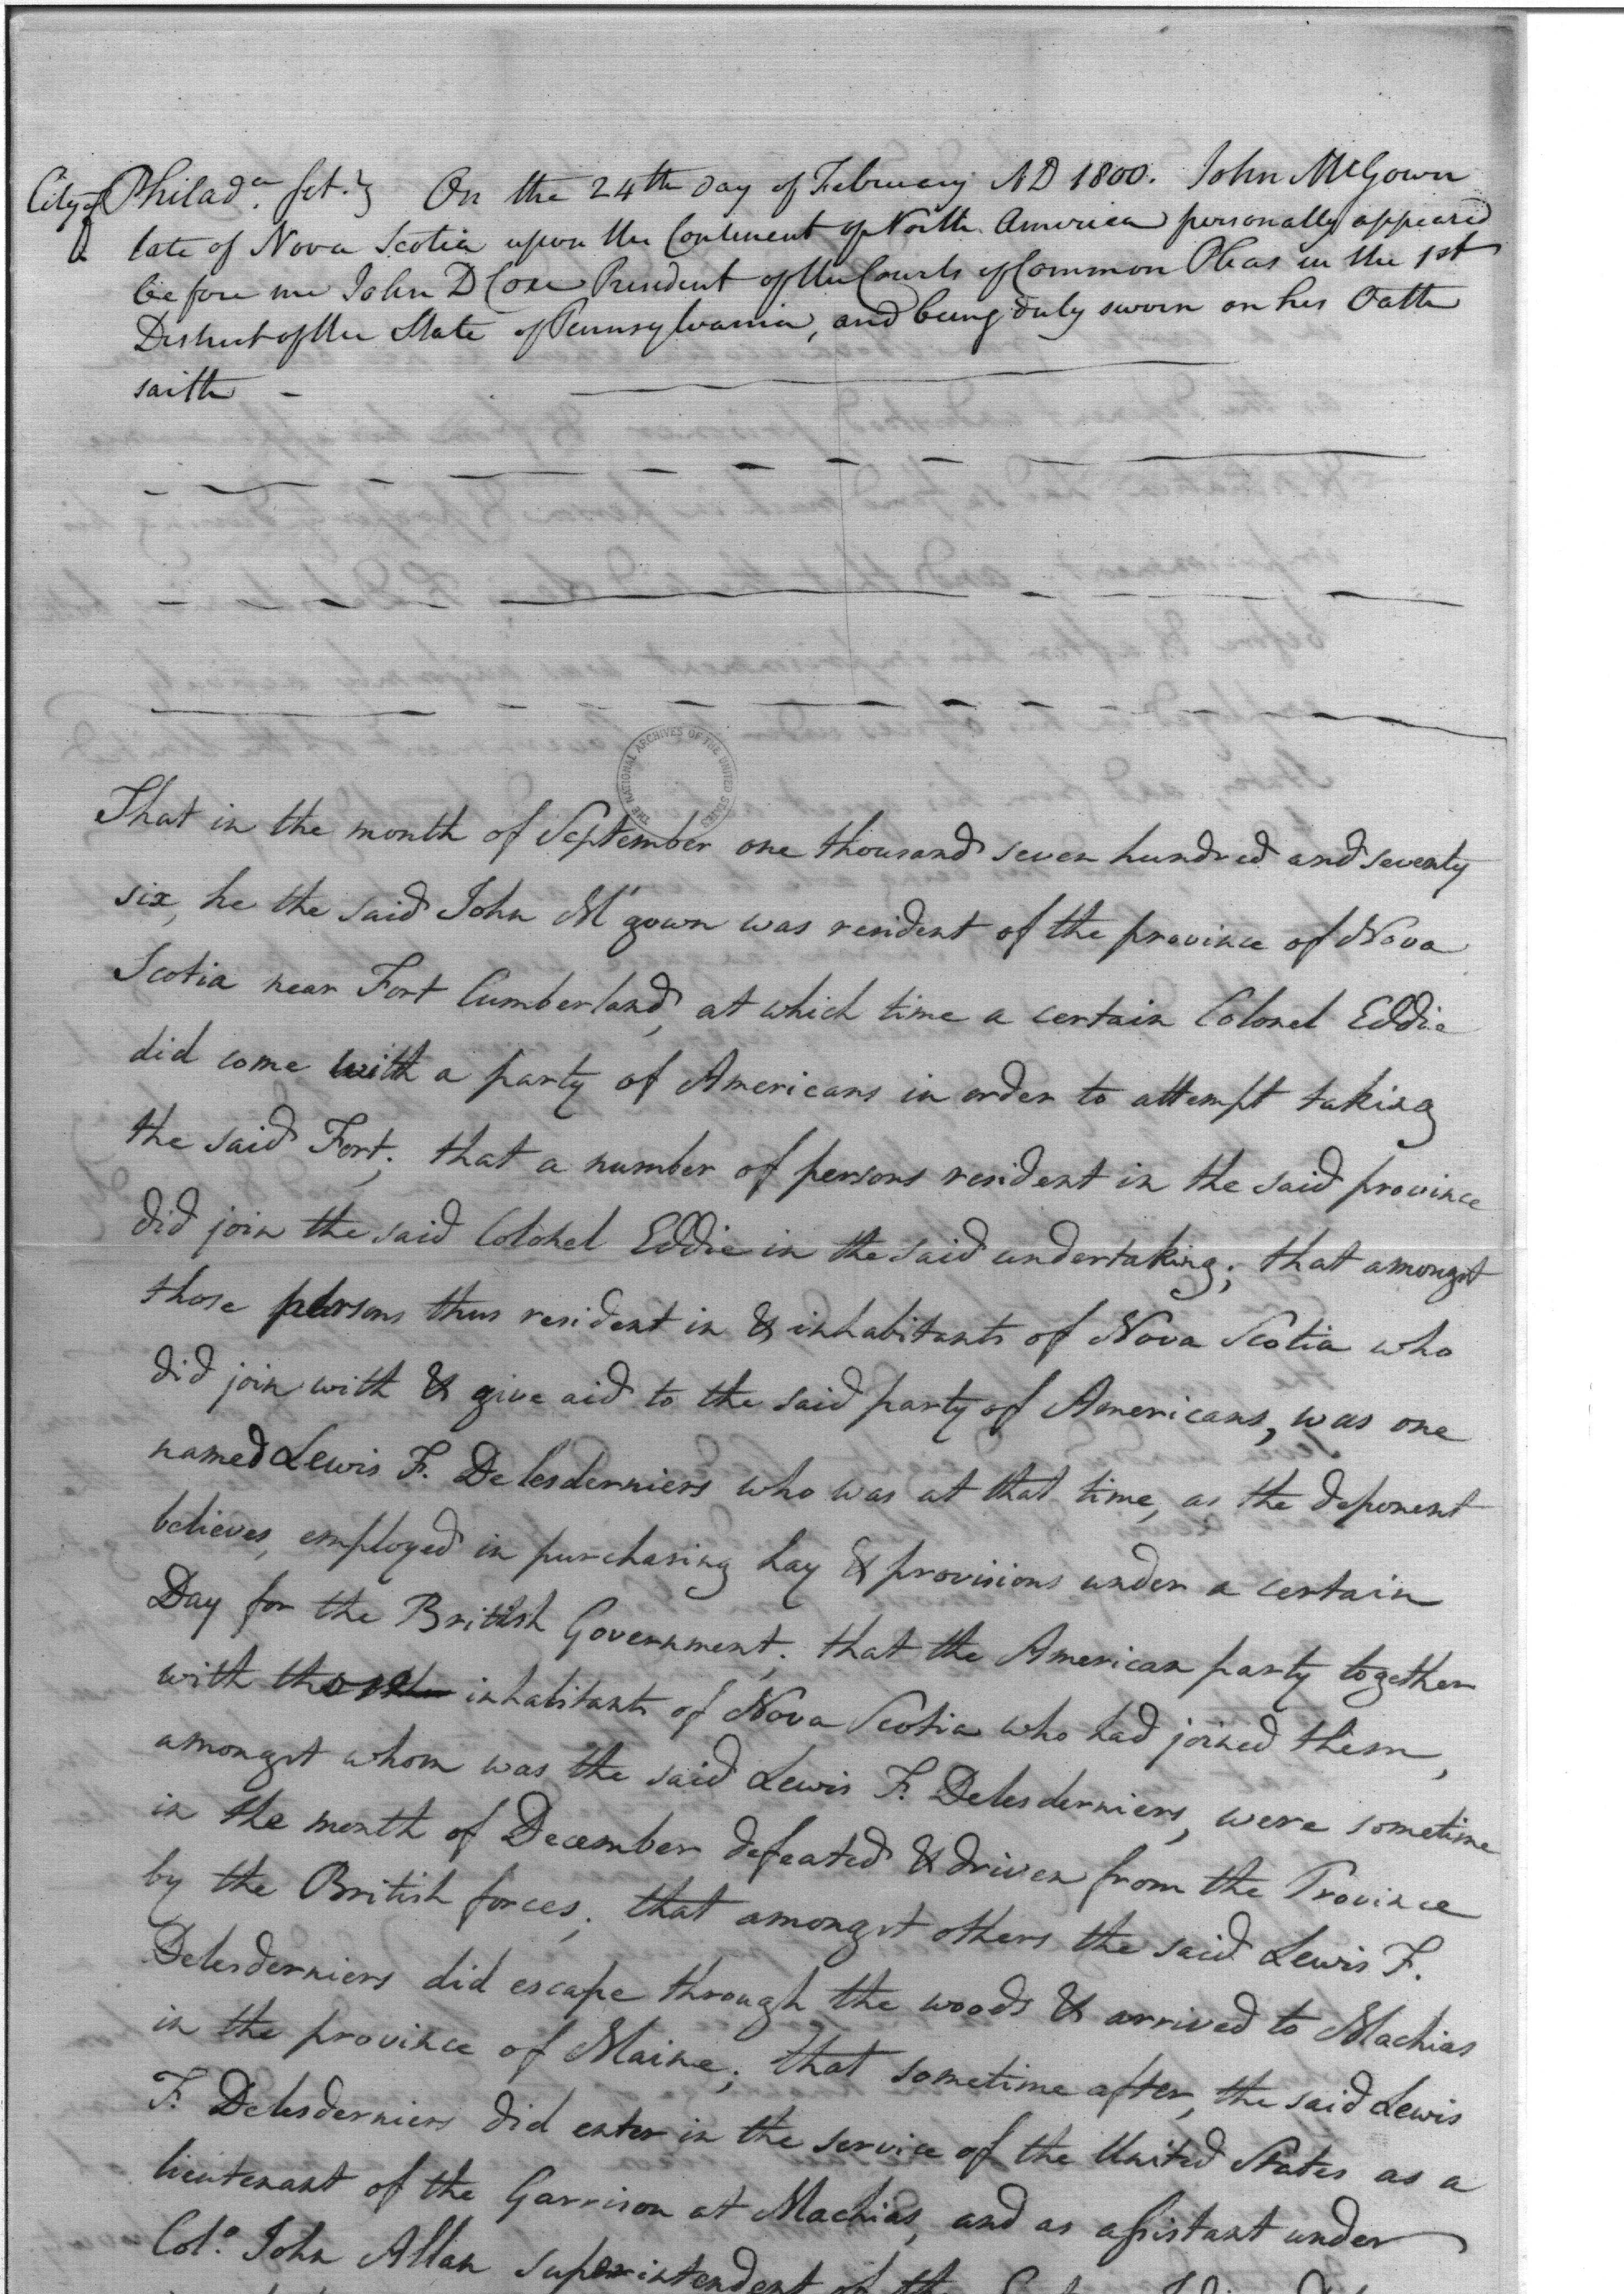 City of Philad.a Sct.} On the 24th day of February AD 1800. John McGown
late of Nova Scotia upon the Continent of North America personally appeared
before me John D Coxe President of the Courts of Common Pleas in the 1st
District of the State of Pennsylvania, and being duly sworn on his Oath
saith -
THE NATIONAL ARCHIVES OF THE UNITED STATES
That in the month of September one thousand seven hundred and seventy
six, he the said John M"gown was resident of the province of Nova
Scotia near Fort Cumberland, at which time a certain Colonel Eddie
did come with a party of Americans in order to attempt taking
the said Fort; that a number of persons resident in the said province
did join the said Colonel Eddie in the said undertaking; that amongst
those persons thus resident in & inhabitants of Nova Scotia who
did join with & give aid to the said party of Americans, was one
named Lewis F. Delesderniers who was at that time, as the deponent
believes, employed in purchasing hay & provisions under a certain
Day for the British Government; that the American party together
with the inhabitants of Nova Scotia who had joined them,
amongst whom was the said Lewis F. Delesderniers, were sometime
in the month of December defeated & driven from the Province
by the British forces; that amongst others the said Lewis F.
Delesderniers did escape through the woods & arrived to Machias
in the province of Maine; that sometime after, the said Lewis
F. Delesderniers did enter in the service of the United States as a
lieutenant of the Garrison at Machias, and as assistant under
Col.o John Allan superintendent of the